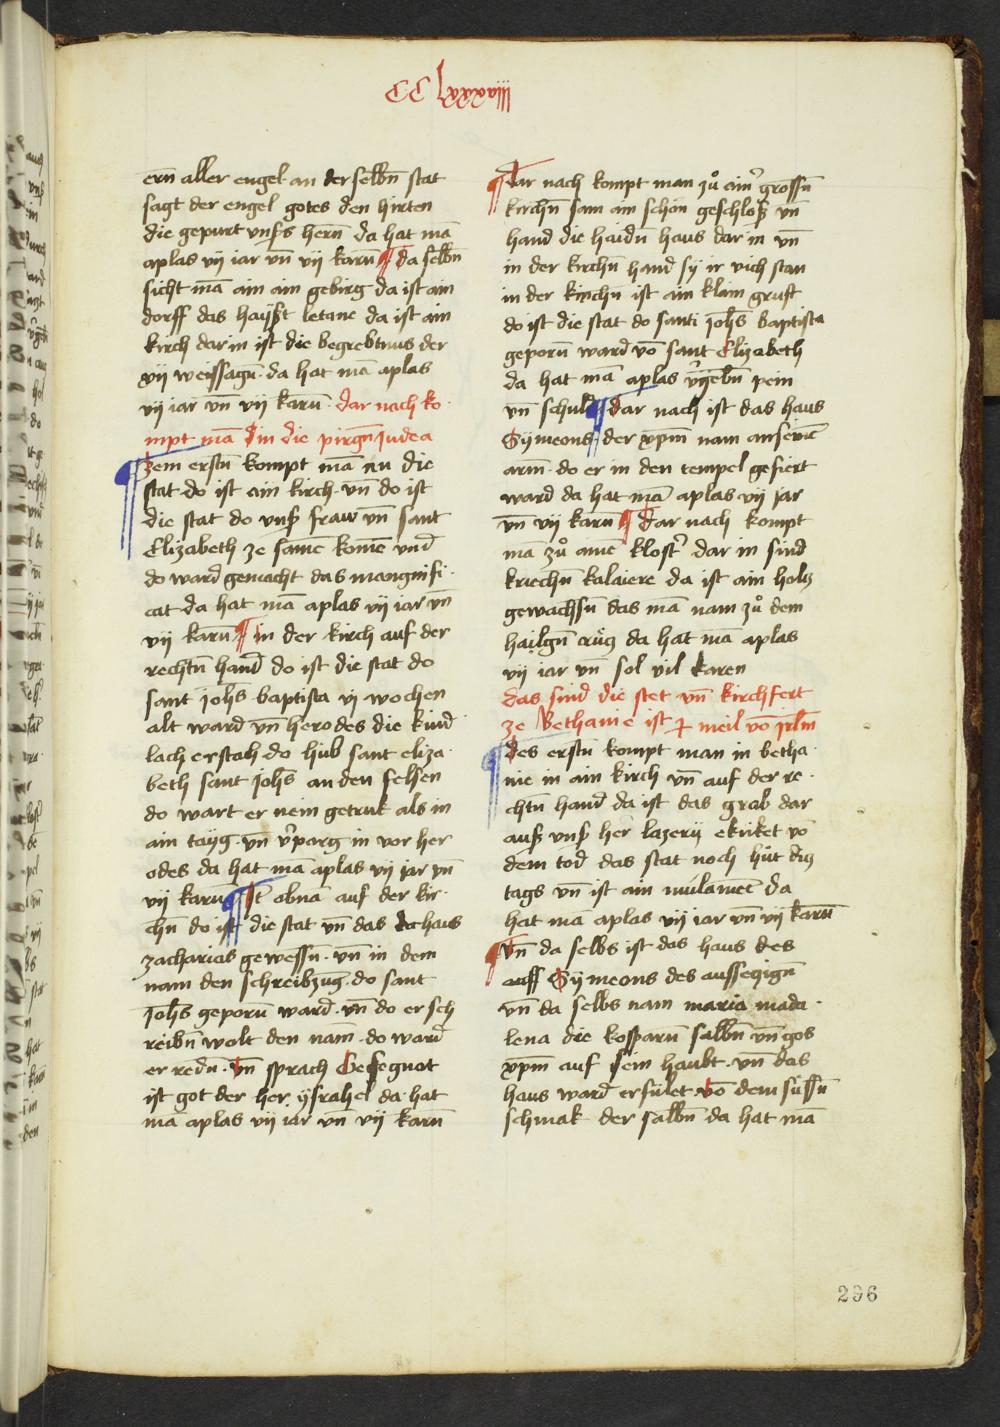 CClxxxviij
ern̄ aller engel · an der selbn̄ stat
sagt der engel gotes den hirten
die gepurt vnsˢ hern̄ da hat mā
aplas vij iar vn̄ vij karn̄ ¶ da selbn̄
sicht mā ain ain gebirg da ist ain
dorff das hayßt letane da ist ain
kirch dar in ist die begrebtnus der
xij weyssagn̄ · da hat mā aplas
vij iar vn̄ vij karn̄ · dar nach ko·
mpt mā in die pirgn̄ Judea
¶ Zem erstn̄ kompt mā zu die
stat do ist ain kirch · vn̄ do ist
die stat do vnsß fraw vn̄ sant
Elizabeth ze samē komē vnd
do ward gemacht das mangnifi·
cat da hat mā aplas vij iar vn̄
vij karn̄ ¶ In der kirch auf der
rechtn̄ hand do ist die stat do
sant johs baptista vj wochen
alt ward vn̄ herodes die kind
lach erstach do hub sant eliza·
beth sant johs an den felsen
do wart er nein getrukt als in
ain tayg · vn̄ v̓parg in vor her
odes da hat mā aplas vij jar vn̄
vij karn̄ ¶ It̄ obnā auf der kir·
chn̄ do ist die stat vn̄ das haus
zacharias gewessn̄ · vn̄ in dem
nam den schreibzug · do sant
Johs geporn̄ ward · vn̄ do er sch
reibn̄ wolt den nam̄ · do ward
er redn̄ · vn̄ sprach Gesegnot
ist got der her ysrahel da hat
mā aplas vij iar vn̄ vij karn̄
¶ Dar nach kompt man zů ainˀ grossn̄
kirchn̄ sam ain schön geschloß vn̄
hand die haidn̄ haus dar in vn̄
in der kirchn̄ hand sy ir vich stan
in der kirchn̄ ist ain klain gruft
do ist die stat do santi johs baptista
geporn̄ ward vō sant Elizabeth
da hat mā aplas v̓gebn̄ pein
vn̄ schuld ¶ dar nach ist das haus
Symeons · der xpm̄ nam an seinē
arm̄ · do er in den tempel gefiert
ward da hat mā aplas vij jar
vn̄ vij karn̄ ¶ Dar nach kompt
mā zů ainē klostˀ dar in sind
kriechn̄ kalaiere da ist ain holtz
gewachsn̄ das mā nam zů dem
hailgn̄ crütz da hat mā aplas
vij iar vn̄ sol vil karen
das sind die stet vn̄ kirchfert
ze Bethanie ist meil vō jrlm̄
¶ Des erstn̄ kompt man in betha·
nie in ain kirch vn̄ auf der re·
chtn̄ hand da ist das grab dar
auß vnsß her lazerij ekriket vō
dem tod das stat noch hüt ditz
tags vn̄ ist ain mūlamēt da
hat mā aplas vij iar vn̄ vij karn̄
¶ Vn̄ da selbs ist das haus des
auff Symeons des aussetzign̄
vn̄ da selbs nam maria mada·
lena die kosparn̄ salbn̄ vn̄ gos
xpm̄ auf sein haubt · vn̄ das
haus ward erfület vō dem süssn̄
schmak der salbn̄ da hat mā
296